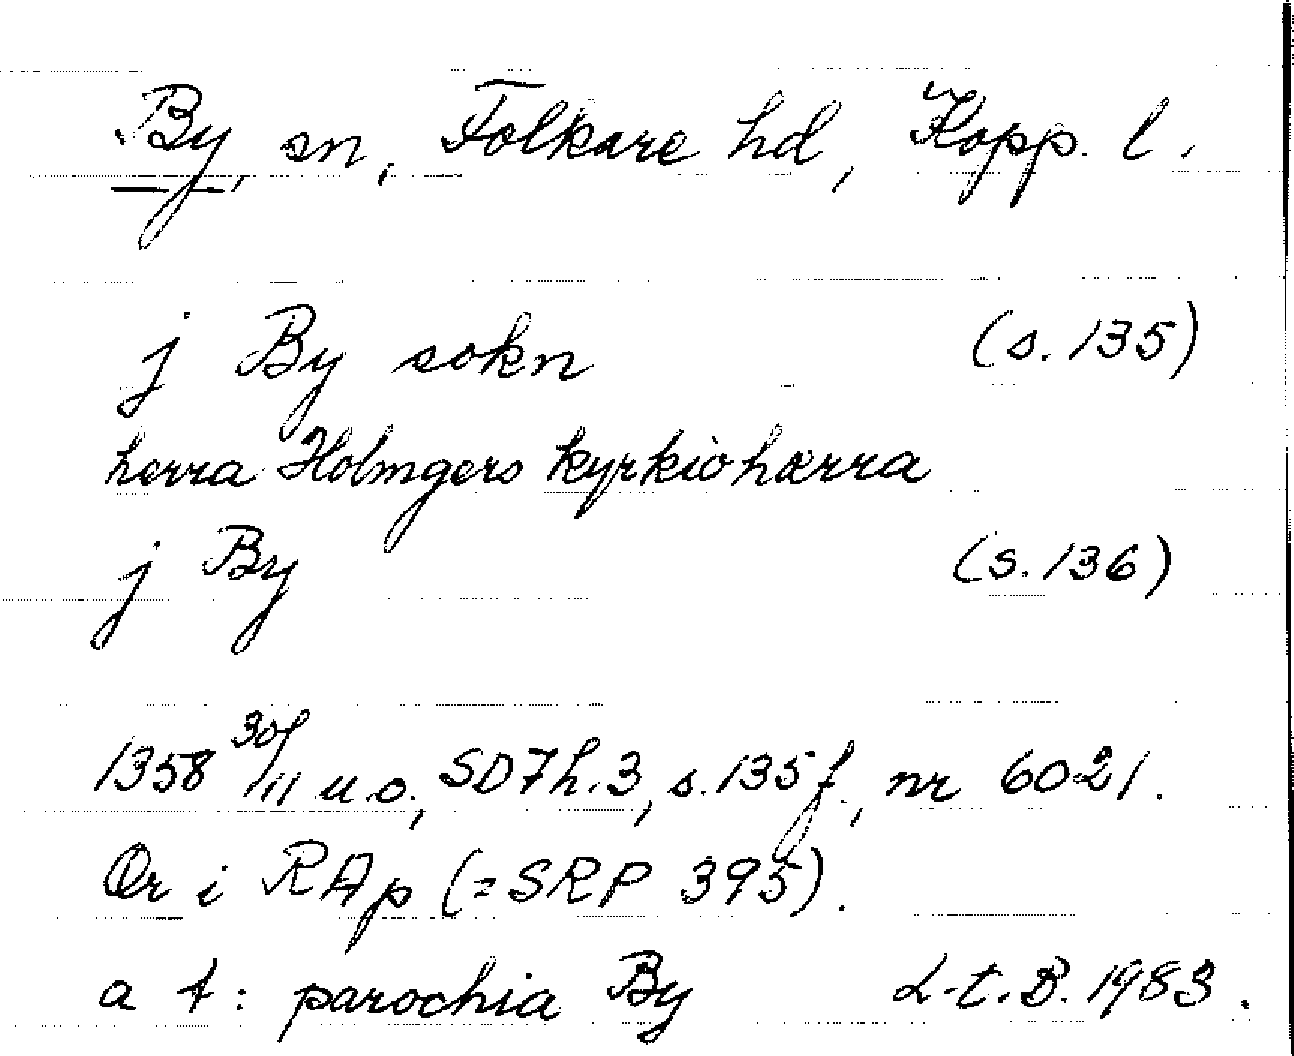 By, sn, Folkare hd, Kopp. l.
j By sokn (s. 135)
herra Holmgers kyrkiohærra
j By (s. 136)
1358 30/11 u.o., SD7h.3, s.135f., nr 6021.
Or i RAp (=SRP 395).
a t: parochia By L-t.B. 1983.